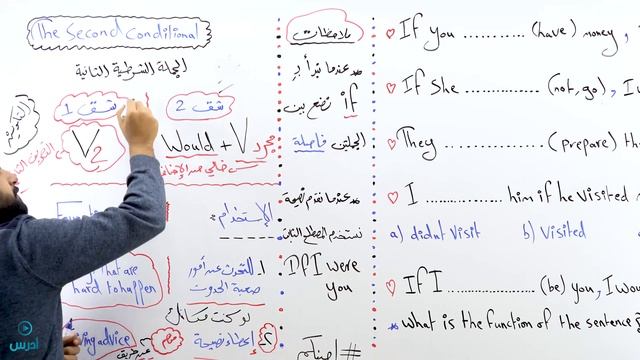 The Second Conditional
الجملة الشرطية الثانية
شق 1
شق 2
V2
Would + V مجرد
الإستخدام:
1. التحدث عن أمور
صعبة الحدوث
that are
hard to happen
لو كنت مكانك
2. إعطاء نصيحة
advice
ملاحظات
عندما نبدأ بـ
if نضع بين
الجملتين فاصلة
عندما نقدم نصيحة
نستخدم
If I were
you
If you ........... (have) money,
If She ........... (not, go), I
They ........... (prepare)
I ........... him if he visited
a) didn't visit b) Visited
If I ........... (be) you, I wou
* what is the function of the sentence
ادرس